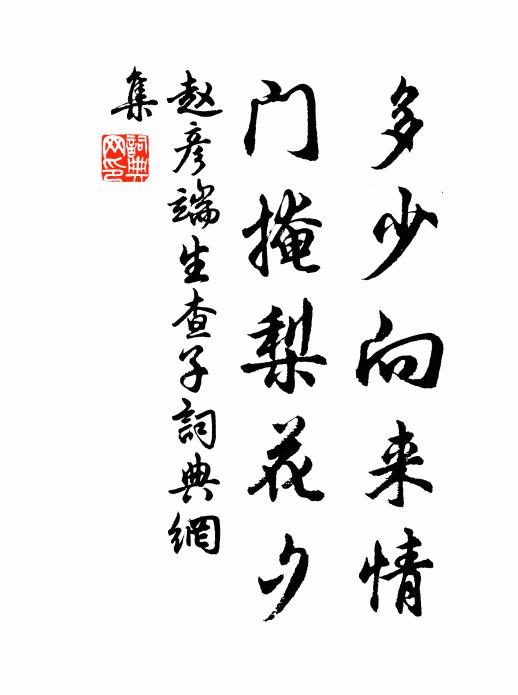 多少向来情
門掩梨花夕
赵彦端生查子詞典網
集
詞典
网印